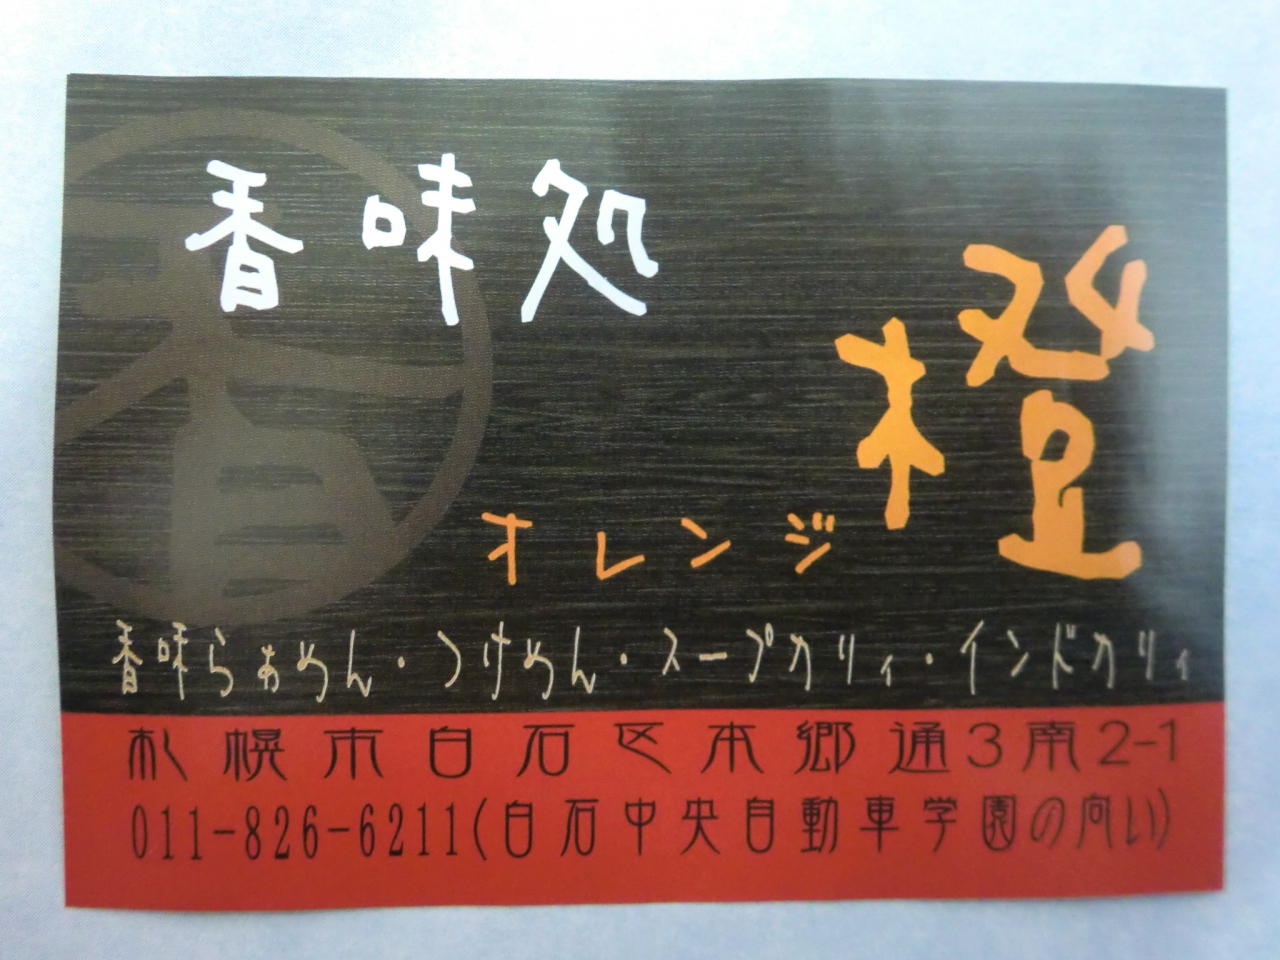 香味処
橙
オレンジ
香味らぁめん・つけめん・スープカリィ・インドカリィ
札幌市白石区本郷通3南2-1
011-826-6211(白石中央自動車学園の向い)
香